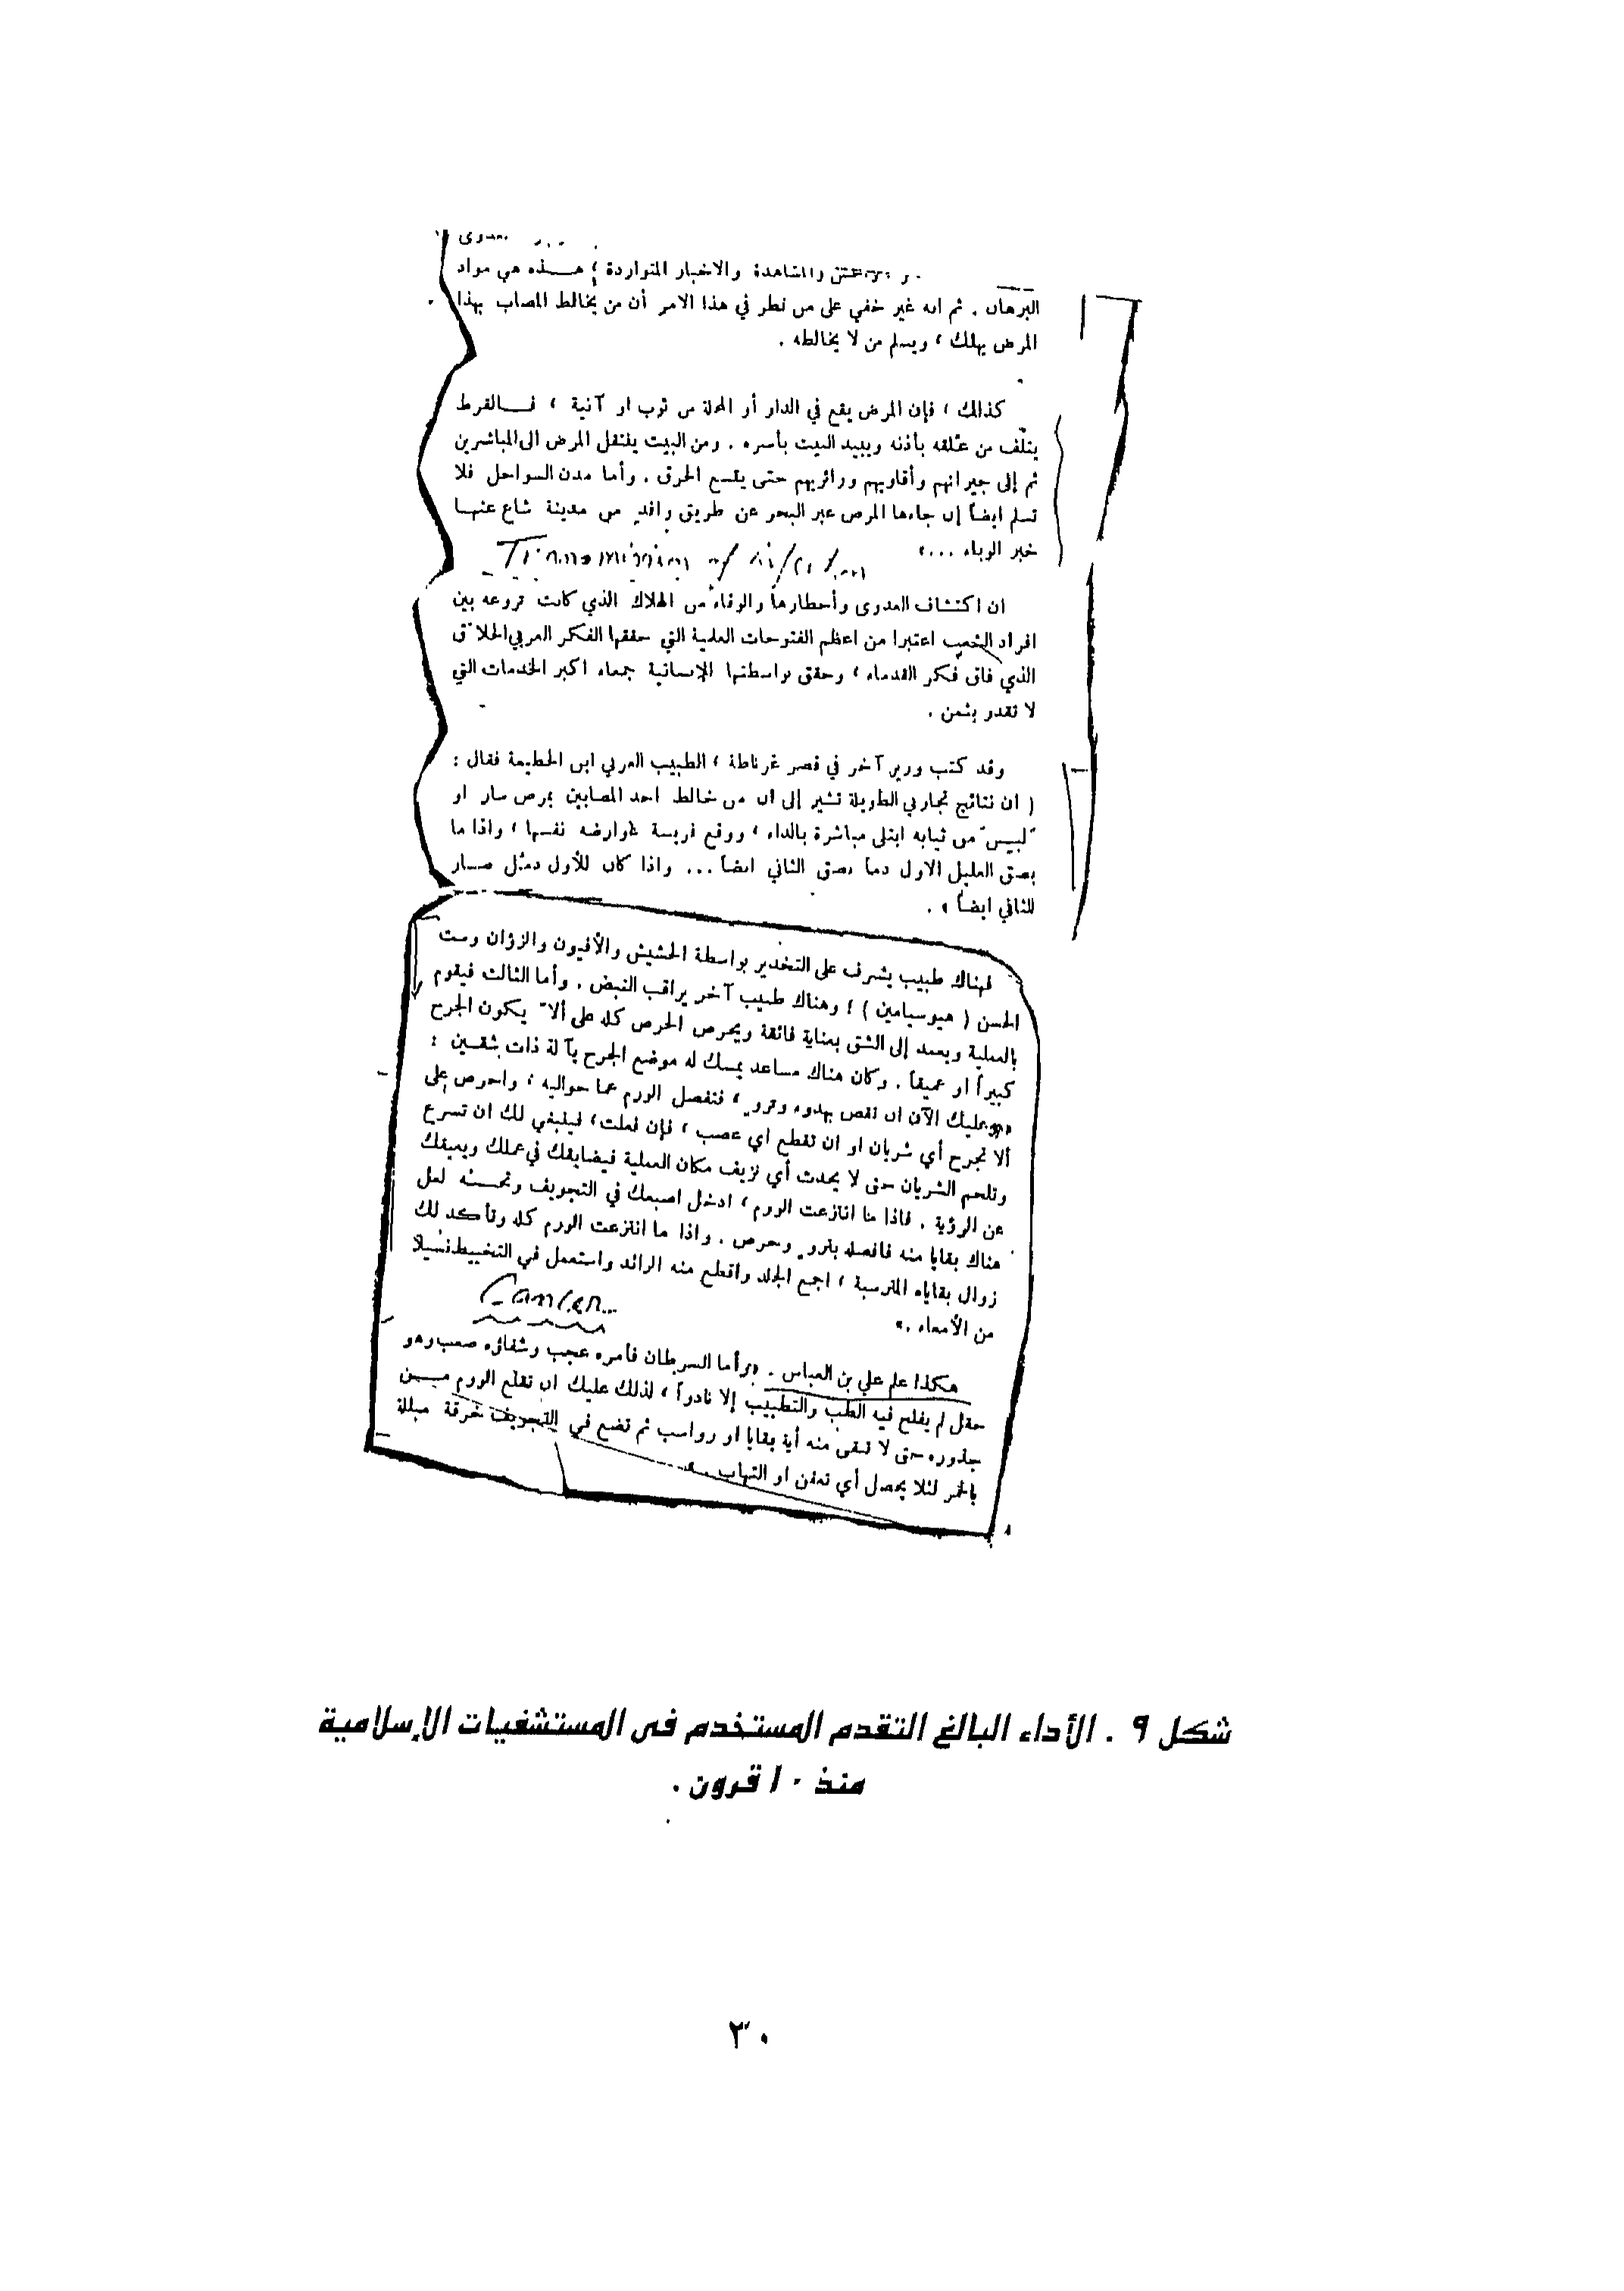 والمشاهدة والاخبار المتواردة ؛ هـذه هي مواد
البرهان . ثم انه غير خفي على من نظر في هذا الامر أن من يخالط المصاب بهذا
المرض يهلك ، ويسلم من لا يخالطه .
كذلك ، فإن المرض يقع في الدار أو المحلة من ثوب او آنية ، فـالقرط
يتلّف من علقه بأذنه ويبيد البيت بأسره . ومن البيت ينتقل المرض الى المباشرين
ثم إلى جيرانهم وأقاربهم وزائريهم حتى يتسع الخرق . وأما مدن السواحل فلا
تسلم ايضاً إن جاءها المرض عبر البحر عن طريق وافدٍ من مدينة شاع عنهـا
خبر الوباء ...»
Transmission of
ان اكتشاف العدوى وأخطارها والوقاء من الهلاك الذي كانت تروعه بين
افراد الشعب اعتبرا من اعظم الفتوحات العلمية التي حققها الفكر العربي الخلاّق
الذي فاق فكر القدماء ، وحقق بواسطتها للإنسانية جمعاء اكبر الخدمات التي
لا تقدر بثمن .
وقد كتب وزير آخر في قصر غرناطة ، الطبيب العربي ابن الخطيمة فقال :
( ان نتائج تجاربي الطويلة تشير إلى ان من خالط احد المصابين بمرض سار او
لبيس من ثيابه ابتلى مباشرة بالداء ، ووقع فريسة عوارضه نفسها ، واذا ما
بصق العليل الاول دماً بصق الثاني ايضاً ... واذا كان للأول دمّل صـار
للثاني ايضاً » .
فهناك طبيب يشرف على التخدير بواسطة الحشيش والأفيون والزؤان وست
الحسن ( هيوسيامين ) ؛ وهناك طبيب آخر يراقب النبض . وأما الثالث فيقوم
بالعملية ويعمد إلى الشق بعناية فائقة ويحرص الحرص كله على ألاّ يكون الجرح
كبيراً او عميقاً . وكان هناك مساعد يمسك له موضع الجرح بآلة ذات شقـين :
«وعليك الآن ان تقص بهدوء وتروٍ ، فتفصل الورم عما حواليه ، واحرص على
ألا تجرح أي شريان او ان تقطع اي عصب ، فإن فعلت ، فينبغي لك ان تسرع
وتلحم الشريان حتى لا يحدث أي نزيف مكان العملية فيضايقك في عملك ويعيقك
عن الرؤية . فاذا ما انتزعت الورم ، ادخل اصبعك في التجويف وتحسسه لعل
هناك بقايا منه فافصله بتروٍ وحرص . واذا ما انتزعت الورم كله وتأكد لك
زوال بقاياه المترسبة ، اجمع الجلد واقطع منه الزائد واستعمل في التخييط نسيلا
من الأمعاء .»
Cancer...
هكذا علم علي بن العباس . «وأما السرطان فأمره عجب وشفاؤه صعب وهو
حقل لم يفلح فيه الطب والتطبيب إلا نادراً ، لذلك عليك ان تقلع الورم مـن
جذوره حتى لا تبقى منه أية بقايا او رواسب ثم تضع في التجويف خرقة مبللة
بالخمر لئلا يحصل أي تعفن او التهاب . »
شكل ٩ . الأداء البالغ التقدم المستخدم فى المستشفيات الإسلامية
منذ ١٠ قرون .
٣٠